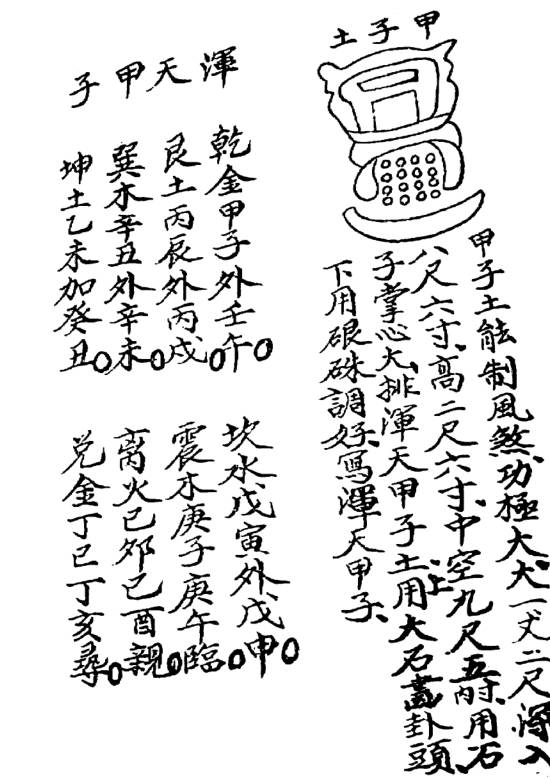 甲子土
甲子土能制風煞、功極大、大一丈二尺深入
八尺六寸、高二尺六寸、中空九尺五寸、内用石
子掌心大、排渾天甲子土、上用大石畫卦頭、
下用硍硃調好、寫渾天甲子、
渾天甲子
乾金甲子外壬午。
艮土丙辰外丙戌。
巽木辛丑外辛未。
坤土乙未加癸丑。
坎水戊寅外戊申。
震木庚子庚午臨。
离火己夘己酉親。
兌金丁巳丁亥尋。